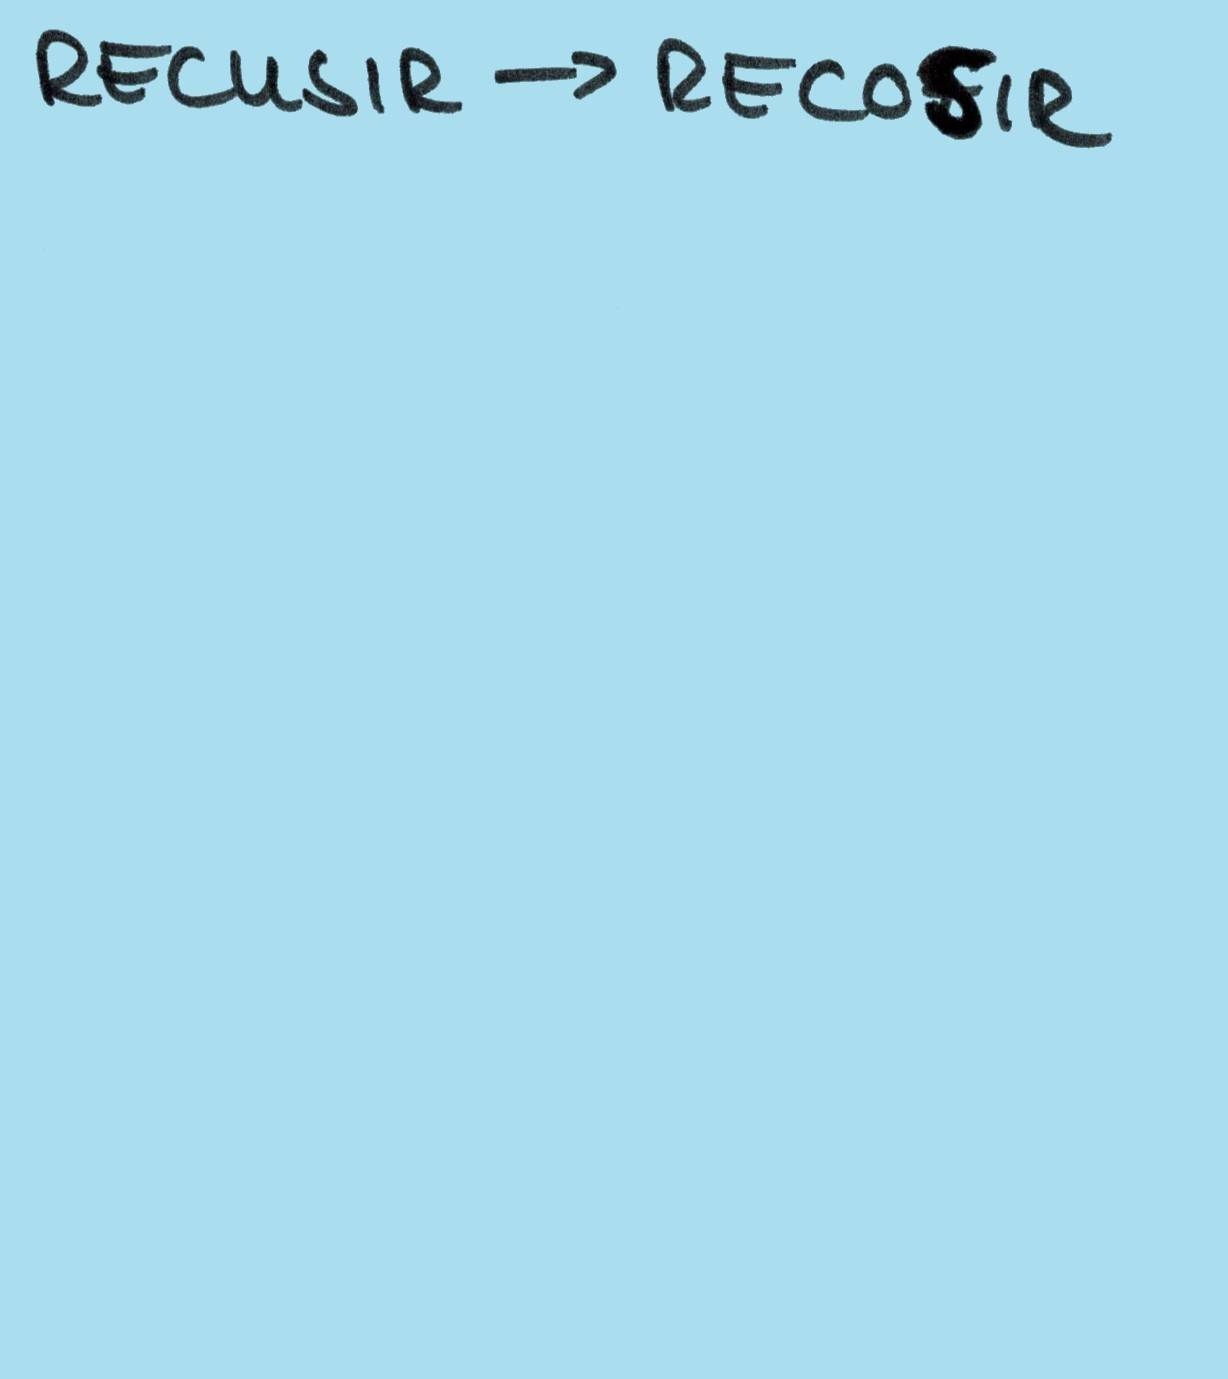 RECUSIR → RECOSIR